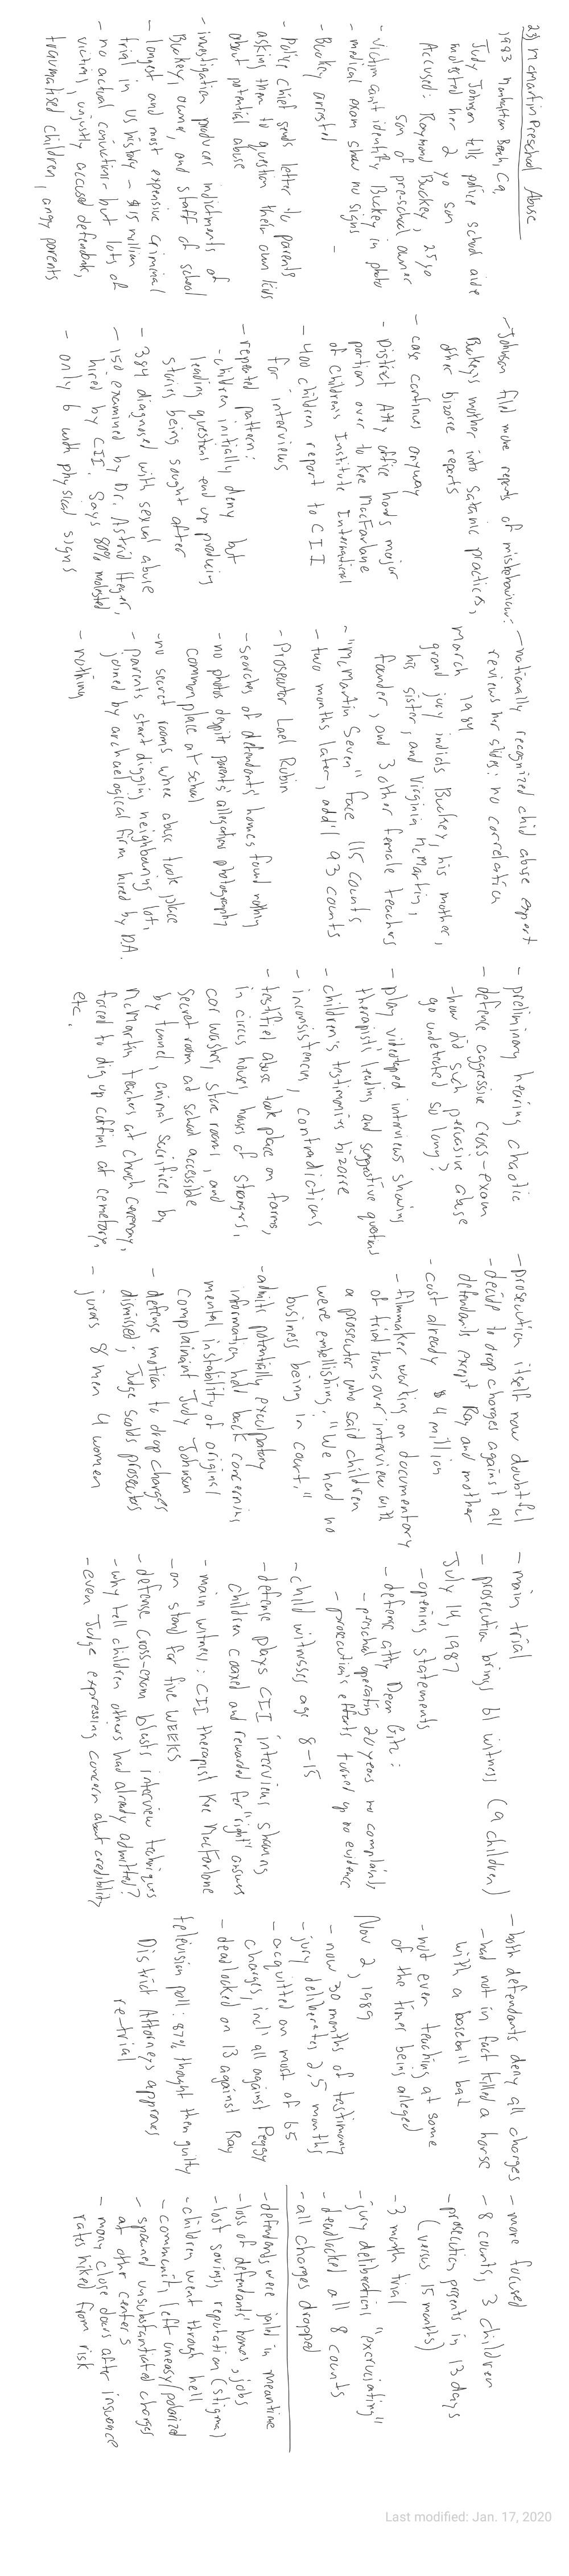 23) McMartin Preschool Abuse
1983 Manhattan Beach, Ca.
Judy Johnson tells police school aide
molested her 2 yo son
Accused: Raymond Buckey, 25 yo
son of pre-school owner
- victim can't identify Buckey in photo
- medical exam show no signs
- Buckey arrested
- Police Chief sends letter to parents
asking them to question their own kids
about potential abuse
- investigation produces indictments of
Buckey, owner, and staff of school
- longest and most expensive criminal
trial in US history - $15 million
- no actual convictions but lots of
victims, unjustly accused defendants,
traumatised children, angry parents
- Johnson filed more reports of misbehaviour:
Buckey's mother into Satanic practices,
other bizarre reports
- case continues anyway
- District Atty office hands major
portion over to Kee MacFarlane
of Children's Institute International
- 400 children report to CII
for interviews
- repeated pattern:
- children initially deny but
leading questions end up producing
stories being sought after
- 384 diagnosed with sexual abuse
- 150 examined by Dr. Astrid Heger,
hired by CII. Says 80% molested
- only 6 with physical signs
- nationally recognized chid abuse expert
reviews her slides: no correlation
March 1984
grand jury indicts Buckey, his mother,
his sister, and Virginia McMartin,
founder, and 3 other female teachers
- "McMartin Seven" face 115 counts
- two months later, add'l 93 counts
- Prosecutor Lael Rubin
- searches of defendants' homes found nothing
- no photos despite parents' allegations photography
commonplace at school
- no secret rooms where abuse took place
- parents start digging neighbouring lot,
joined by archaelogical firm hired by D.A.
- nothing
- preliminary hearing chaotic
- defense aggressive cross-exam
- how did such pervasive abuse
go undetected so long?
- play videotaped interviews showing
therapists' leading and suggestive questions
- children's testimonies bizarre
- inconsistencies, contradictions
- testified abuse took place on farms,
in circus houses, houses of strangers,
car washes, store rooms, and
secret room at school accessible
by tunnel, animal sacrifices by
McMartin teachers at church ceremony,
forced to dig up coffins at cemetery,
etc.
- prosecution itself now doubtful
- decide to drop charges against all
defendants except Ray and mother
- cost already $4 million
- filmmaker working on documentary
of trial turns over interview with
a prosecutor who said children
were embellishing. "We had no
business being in court."
- admits potentially exculpatory
information held back concerning
mental instability of original
complainant Judy Johnson
- defense motion to drop charges
dismissed; Judge scolds prosecutors
- jurors 8 men 4 women
- main trial
- prosecution brings 61 witness (9 children)
July 14, 1987
- opening statements
- defense atty Dean Gits:
- preschool operating 20 years no complaints
- prosecution's efforts turned up no evidence
- child witnesses age 8-15
- defense plays CII interviews showing
children coaxed and rewarded for "right" answers
- main witness: CII therapist Kee MacFarlane
- on stand for five WEEKS
- defense cross-exam blasts interview techniques
- why tell children others had already admitted?
- even Judge expressing concern about credibility
- both defendants deny all charges
- had not in fact killed a horse
with a baseball bat
- not even teaching at some
of the times being alleged
Nov 2, 1989
- now 30 months of testimony
- jury deliberates 2.5 months
- acquitted on most of 65
charges, incl' all against Peggy
- deadlocked on 13 against Ray
television poll: 87% thought then guilty
District Attorneys approves
re-trial
- more focused
- 8 counts, 3 children
- prosecution presents in 13 days
(versus 15 months)
- 3 month trial
- jury deliberations "excruciating"
- deadlocked all 8 counts
- all charges dropped
- defendants were jailed in meantime
- loss of defendants' homes, jobs
- lost savings, reputation (stigma)
- children went through hell
- community left uneasy/polarized
- spawned unsubstantiated charges
at other centers
- many close doors after insurance
rates hiked from risk
Last modified: Jan. 17, 2020